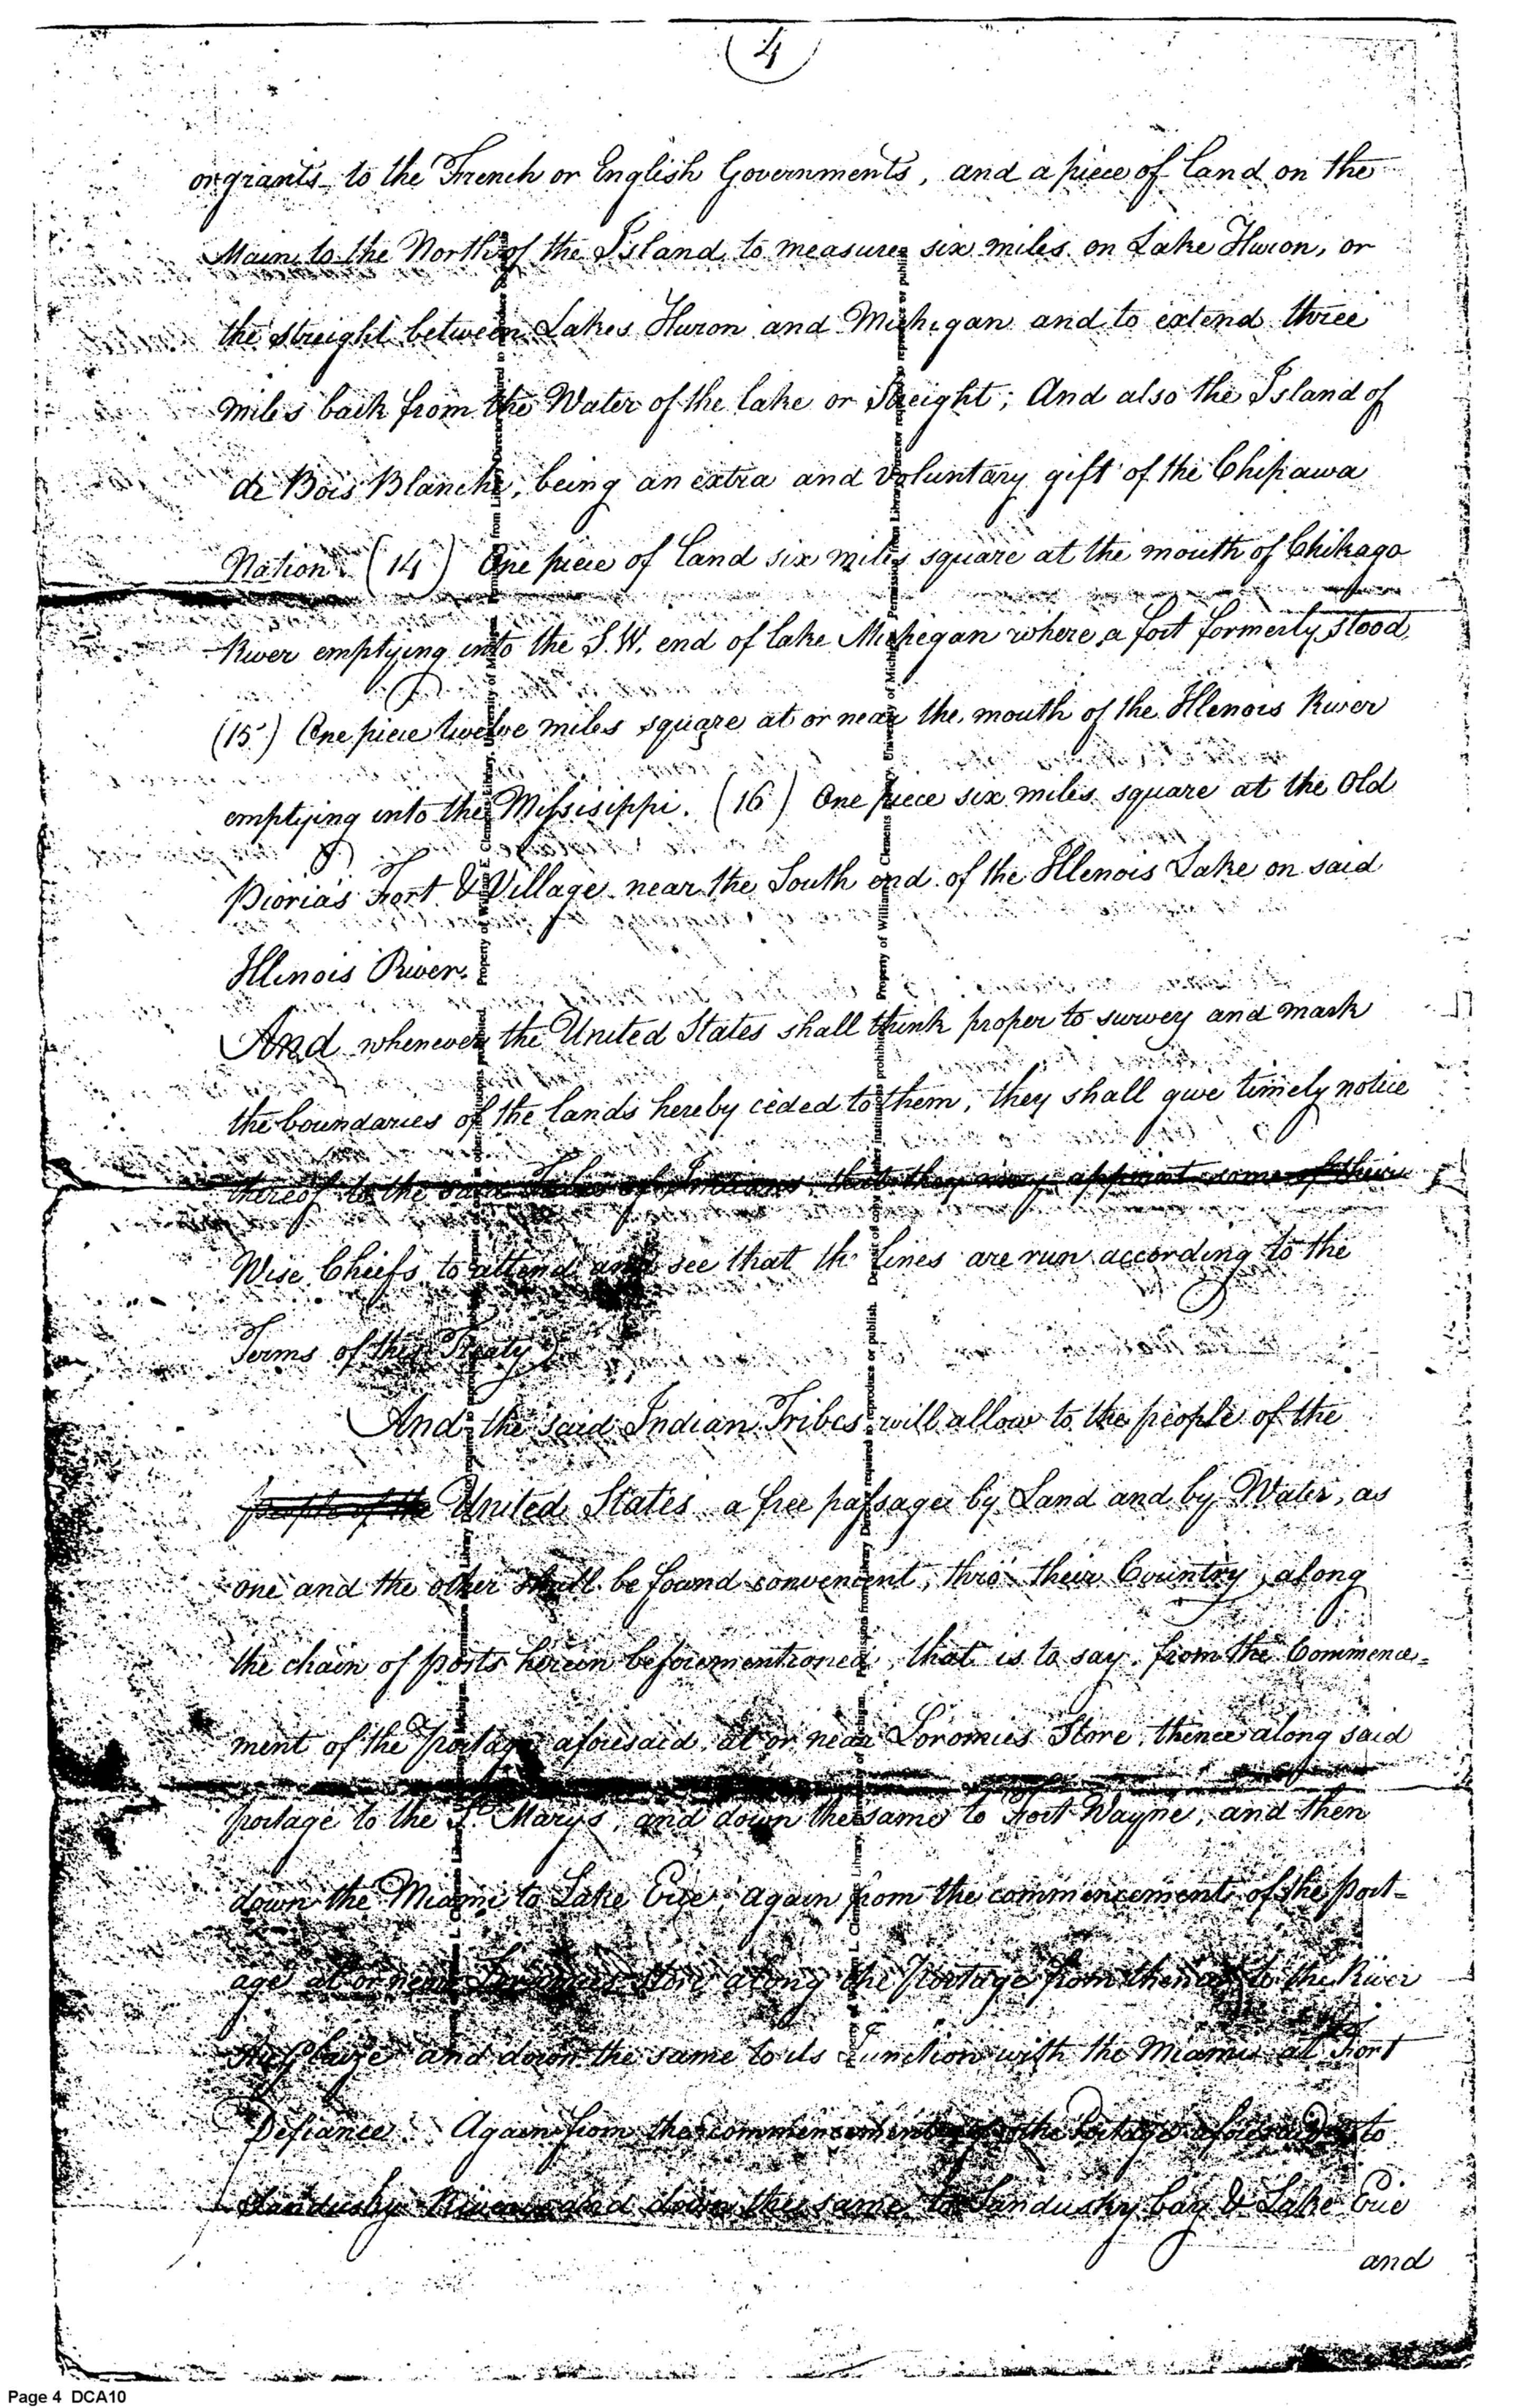 4
or grants to the French or English Governments, and a piece of land on the
Main to the North of the Island to measure six miles on Lake Huron, or
the streight between Lakes Huron and Michigan and to extend three
miles back from the Water of the lake or Streight; And also the Island of
de Bois Blanche, being an extra and voluntary gift of the Chipawa
Nation. (14) One piece of land six miles square at the mouth of Chikago
River emptying into the S.W. end of lake Michegan where a fort formerly stood,
(15) One piece twelve miles square at or near the mouth of the Illenois River
emptying into the Missisippi. (16) One piece six miles square at the Old
Pioria's Fort & Village near the South end of the Illenois Lake on said
Illinois River.
And whenever the United States shall think proper to survey and mark
the boundaries of the lands hereby ceded to them, they shall give timely notice
thereof to the said Tribes of Indians, that they may appoint some of their
Wise Chiefs to attend and see that the lines are run according to the
Terms of this Treaty.
And the said Indian Tribes will allow to the people of the
people of the United States a free passage by Land and by Water, as
one and the other shall be found convenient, thro' their Country, along
the chain of posts herein beforementioned, that is to say, from the Commence=
ment of the Portage aforesaid, at or near Loromies Store, thence along said
portage to the St. Marys, and down the same to Fort Wayne, and then
down the Miami to Lake Erie. again from the commencement of the port=
age at or near Loromies store along the Portage from thence to the River
Au Glaize and down the same to its Junction with the Miami at Fort
Defiance. Again from the commencement of the Portage aforesaid to
Sandusky River and down the same to Sandusky bay & Lake Erie
and
Property of William L. Clements Library, University of Michigan. Permission from Library Director required to reproduce or publish. Deposit of copy in other institutions prohibited.
Property of William L. Clements Library, University of Michigan. Permission from Library Director required to reproduce or publish. Deposit of copy in other institutions prohibited.
Page 4 DCA10